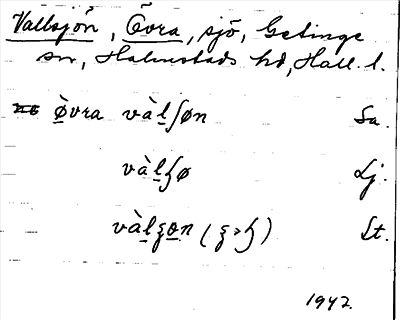 Vallsjön, Övra, sjö, Getinge
sn, Halmstads hd, Hall. l.
ö̀vra vàl̲ʃøn Sa.
vàl̲ɧø Lj.
vàl̲ʂø̲n (ʂ>ɧ) Lt.
1942.